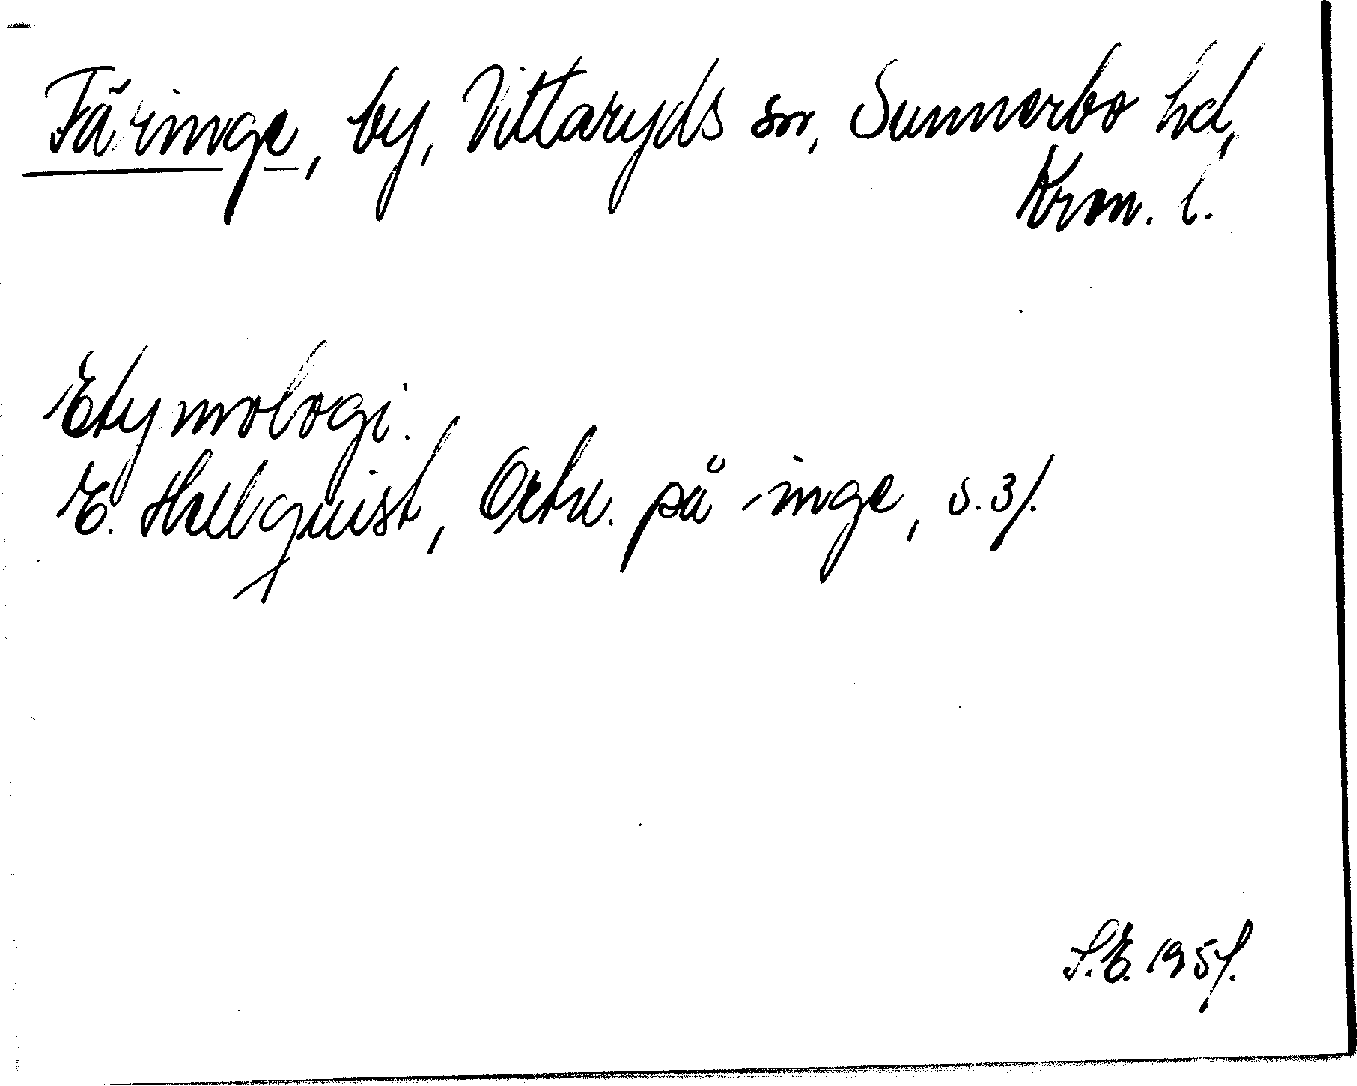 Färinge, by, Vittaryds sn, Sunnerbo hd,
Kron. l.
Etymologi.
E. Hellquist, Ortn. på -inge, s. 31.
S.E. 1951.